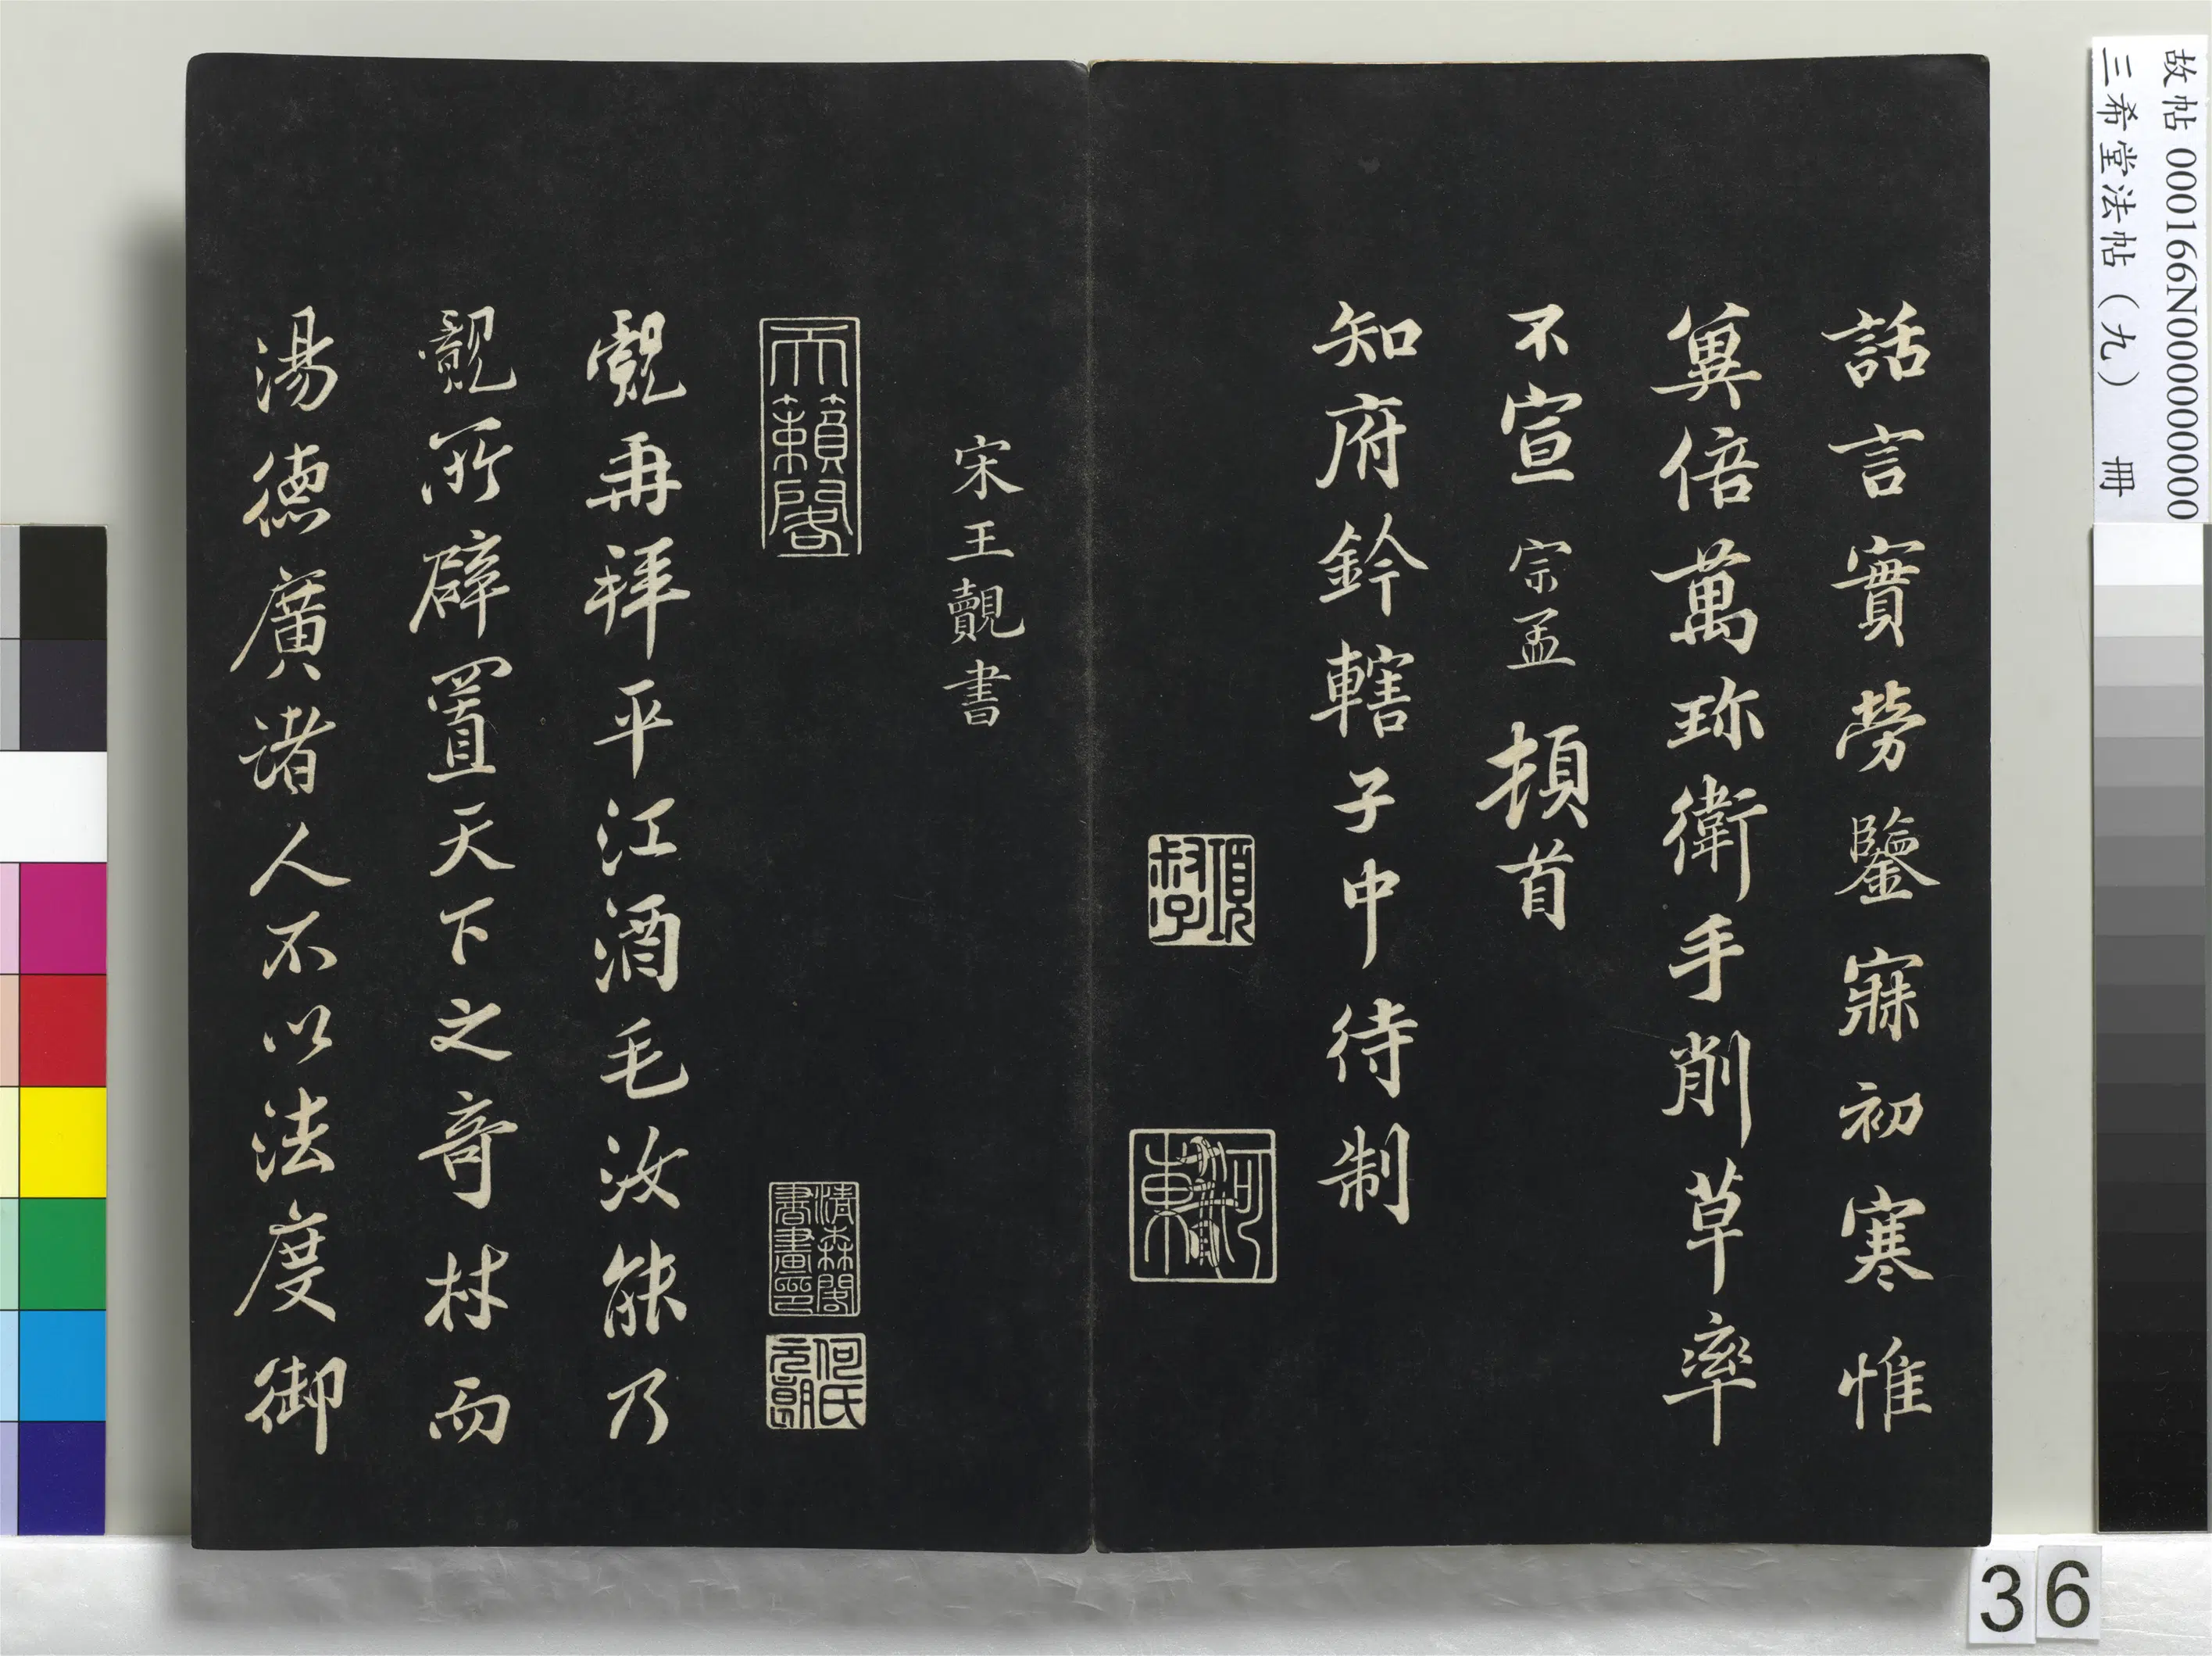 故帖 000166N000000000
三希堂法帖（九） 冊
話言實勞鑒寐初寒惟
冀倍萬珎衛手削草率
不宣 宗孟 頓首
知府鈐轄子中待制
項叔子
宋王覿書
天籟閣
清森閣書畫印
何氏元朗
覿再拜平江酒毛汝能乃
覿所辟置天下之奇材而
湯德廣诸人不以法度御
36